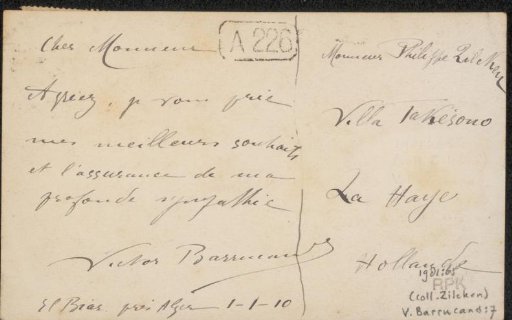 Cher Monsieur
A 226
Agréez, je vous prie
mes meilleurs souhaits
et l'assurance de ma
profonde sympathie
Victor Barrucand
El Biar près Alger 1-1-10
Monsieur Philippe Zilcken
Villa Takesono
La Haye
Hollande
RPK
(coll. Zilcken)
V. Barrucand:7